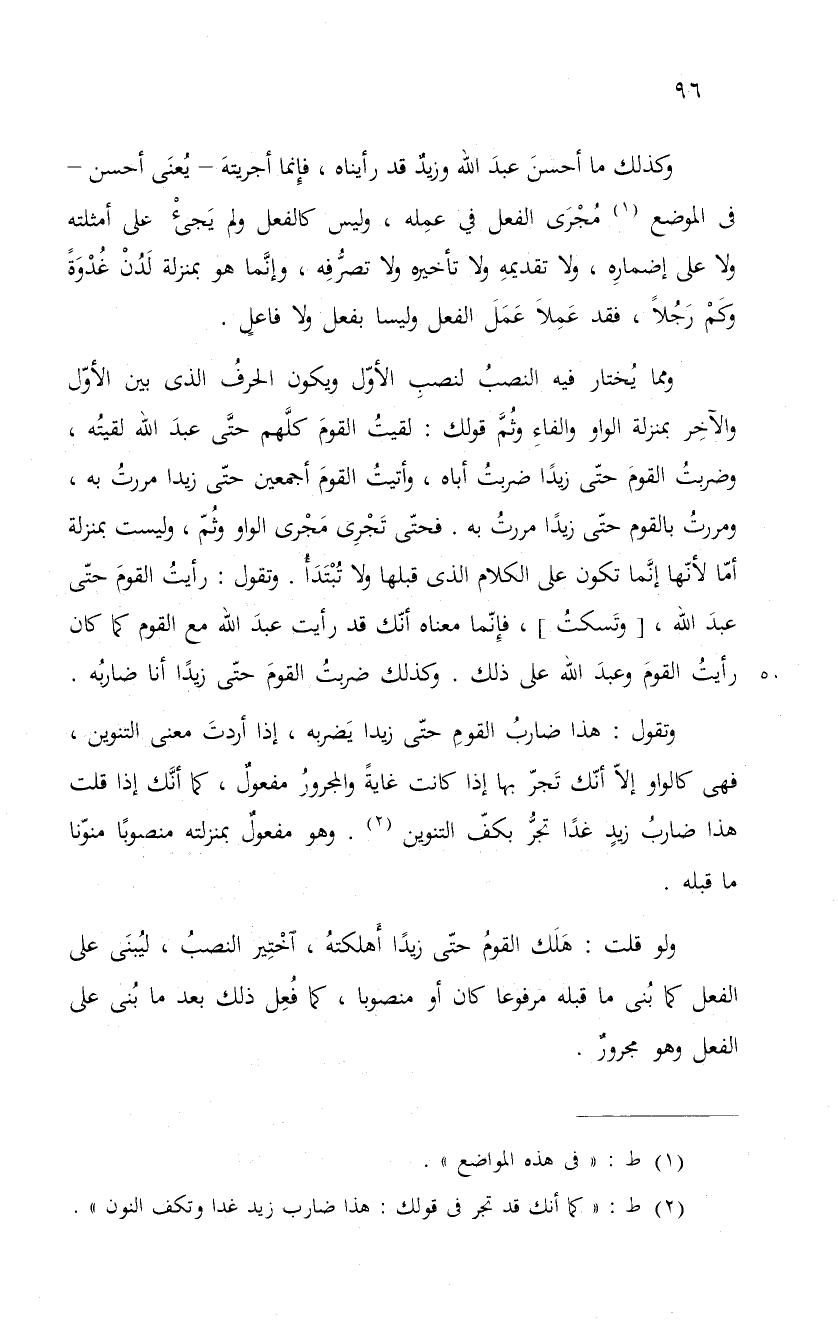 ٩٦
وكذلك ما أحسنَ عبدَ الله وزيدٌ قد رأيناه ، فإنما أجريتهَ – يُعنَى أحسن –
فى الموضع (١) مُجْرَى الفعل في عمِله ، وليس كالفعل ولم يَجىءْ على أمثلته
ولا على إضمارِه ، ولا تقديمهِ ولا تأخيره ولا تصرُّفِه ، وإنَّما هو بمنزلة لَدُنْ غُدْوَةً
وكَمْ رَجُلاً ، فقد عَمِلاَ عَمَلَ الفعل وليسا بفعل ولا فاعلٍ .
ومما يُختار فيه النصبُ لنصبِ الأوّل ويكون الحرفُ الذى بين الأوّل
والآخِر بمنزلة الواو والفاءِ وثُمَّ قولك : لقيتُ القومَ كلَّهم حتَّى عبدَ الله لقيتُه ،
وضربتُ القومَ حتّى زيدًا ضربتُ أباه ، وأتيتُ القومَ أجمعين حتّى زيدا مررتُ به ،
ومررتُ بالقوم حتّى زيدًا مررتُ به . فحتّى تَجْرِى مَجْرى الواو وثُمّ ، وليست بمنزلة
أمّا لأنّها إنَّما تكون على الكلام الذى قبلها ولا تُبْتَدَأُ . وتقول : رأيتُ القومَ حتّى
عبدَ الله ، [ وتَسكتُ ] ، فإنّما معناه أنّك قد رأيت عبدَ الله مع القوم كما كان
رأيتُ القومَ وعبدَ الله على ذلك . وكذلك ضربتُ القومَ حتّى زيدًا أنا ضاربُه . ٥٠
وتقول : هذا ضاربُ القومِ حتّى زيدا يَضربه ، إذا أردتَ معنى التنوين ،
فهى كالواو إلاّ أنّك تَجرّ بها إذا كانت غايةً والمجرورُ مفعولٌ ، كما أنَّك إذا قلت
هذا ضاربُ زيدٍ غدًا تجرُّ بكفّ التنوين (٢) . وهو مفعولٌ بمنزلته منصوبًا منوّنا
ما قبله .
ولو قلت : هَلَك القومُ حتّى زيدًا أَهلكتهُ ، ٱخْتِير النصبُ ، ليُبنَى على
الفعل كما بُنى ما قبله مرفوعا كان أو منصوبا ، كما فُعِل ذلك بعد ما بُنى على
الفعل وهو مجرورٌ .
(١) ط : « فى هذه المواضع » .
(٢) ط : « كما أنك قد تجر فى قولك : هذا ضارب زيد غدا وتكف النون » .